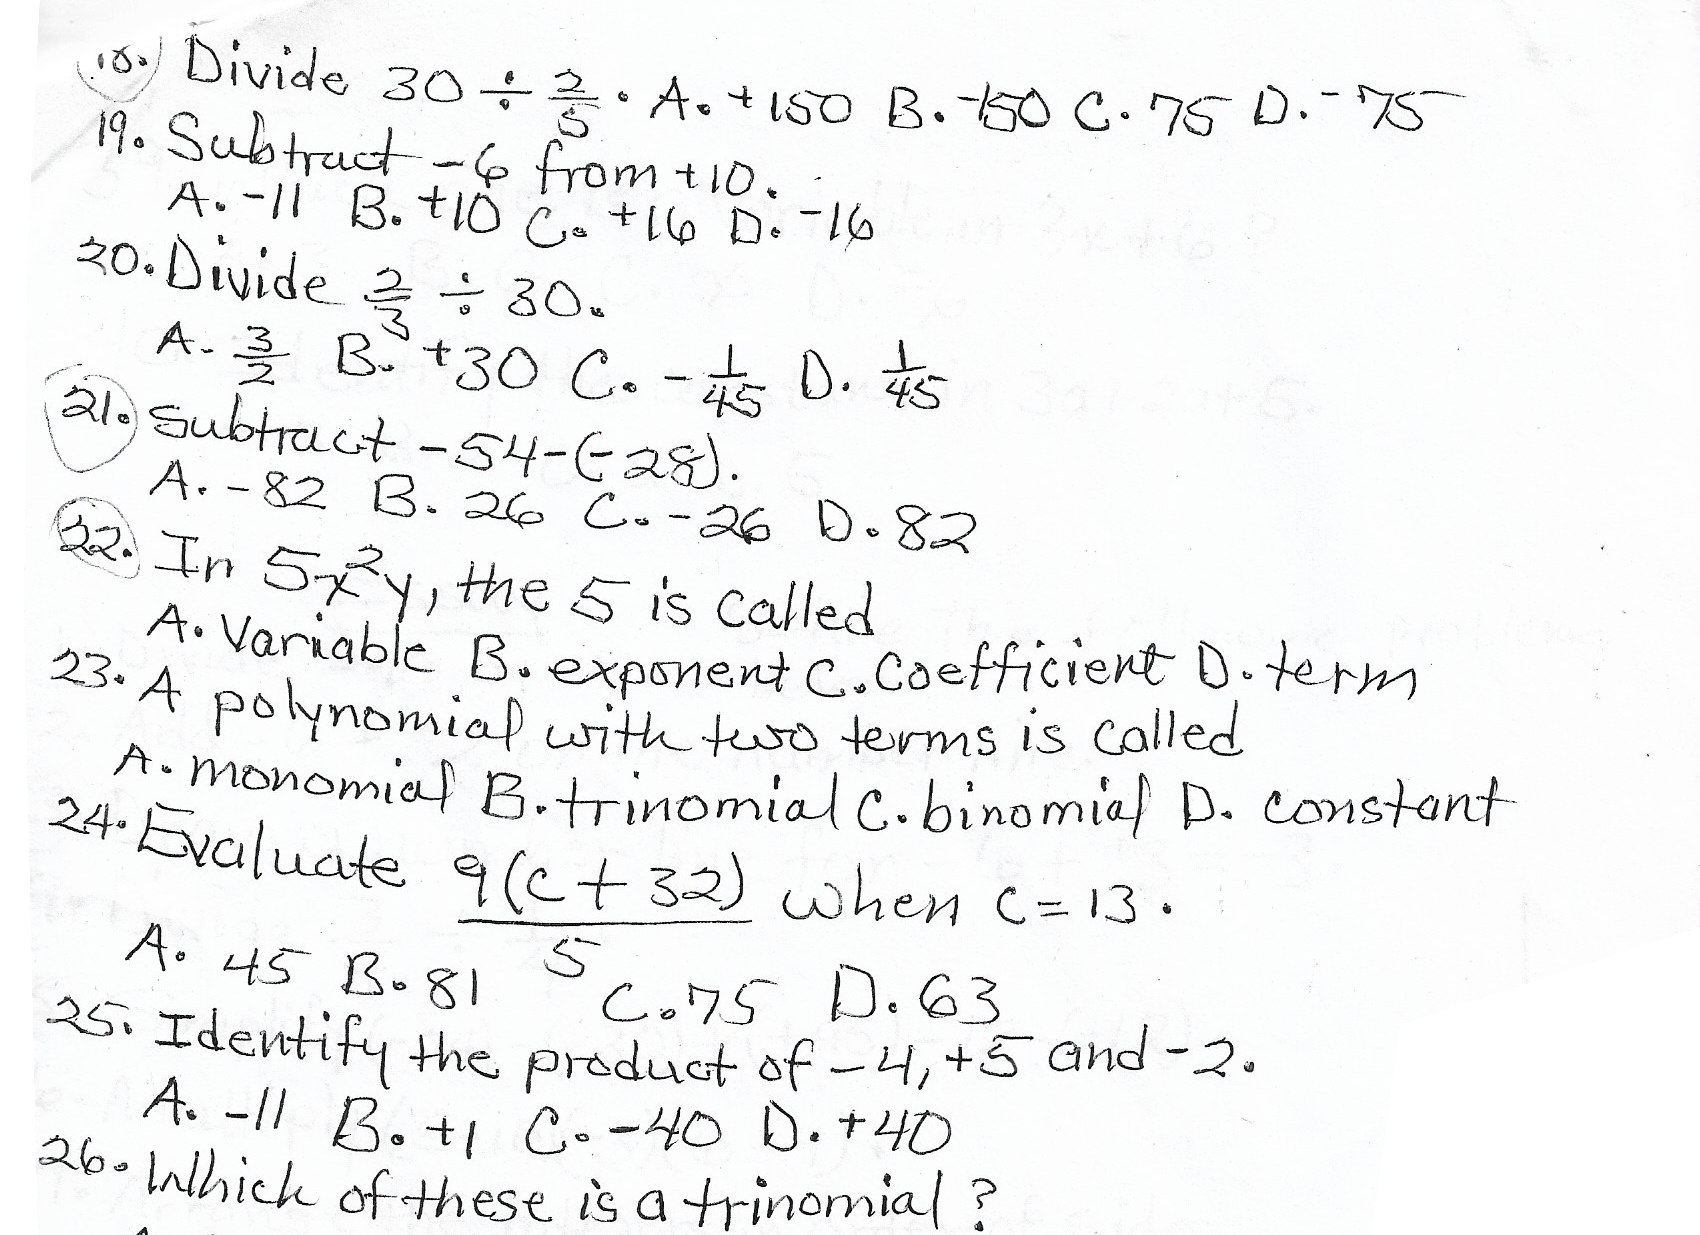 18. Divide 30 ÷ 2/5. A. +150 B. -150 C. 75 D. -75
19. Subtract -6 from +10.
A. -11 B. +10 C. +16 D. -16
20. Divide 2/3 ÷ 30.
A. 3/2 B. +30 C. -1/45 D. 1/45
21. Subtract -54-(-28).
A. -82 B. 26 C. -26 D. 82
22. In 5x²y, the 5 is called
A. Variable B. exponent C. Coefficient D. term
23. A polynomial with two terms is called
A. monomial B. trinomial C. binomial D. constant
24. Evaluate 9(C + 32)/5 when C = 13.
A. 45 B. 81 C. 75 D. 63
25. Identify the product of -4, +5 and -2.
A. -11 B. +1 C. -40 D. +40
26. Which of these is a trinomial?